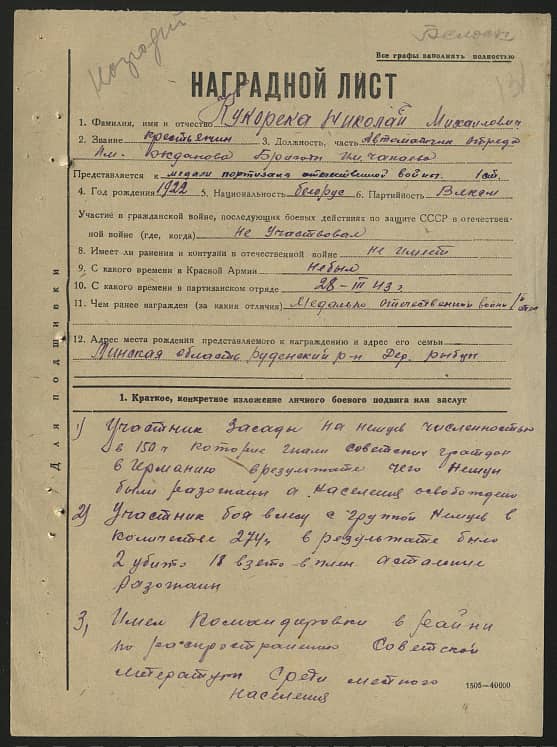 Все графы заполнять полностью
НАГРАДНОЙ ЛИСТ
1. Фамилия, имя и отчество Кукорека Николай Михайлович
2. Звание крестьянин 3. Должность, часть Автоматчик отряда
Им. Жданова Бригоды Им. Чапаева
Представляется к медали партизана отечествиной войны 1 ст.
4. Год рождения 1922 5. Национальность белорус 6. Партийность
Участие в гражданской войне, последующих боевых действиях по защите СССР и отечествен-
ной войне (где, когда) Не Участвовал
8. Имеет ли ранения и контузии в отечественной войне не имеет
9. С какого времени в Красной Армии Небыл
10. С какого времени в партизанском отряде 28-III 43 г
11. Чем ранее награжден (за какия отличия) Медалью Отечественной войны
12. Адрес места рождения представляемого к награждению и адрес его семьи
Минская область Руденский р-н Дер.
Для подшивки
1. Краткое, конкретное изложение личного боевого подвига или заслуг
1) Участник Засады На немцев численностью
в 150 ч которые гнали советских граждан
в Германию в результате чего Немцы
были разогнаны а Населения освобождено
2) Участник боя влесу с группой Немцев в
количестве 27 ч, в результате было
2 убито 18 взето в плен асталние
Разогнаны
3, Имел Командировки в райни
по распространению Советской
литературы Среди местного
населения
1505—40000